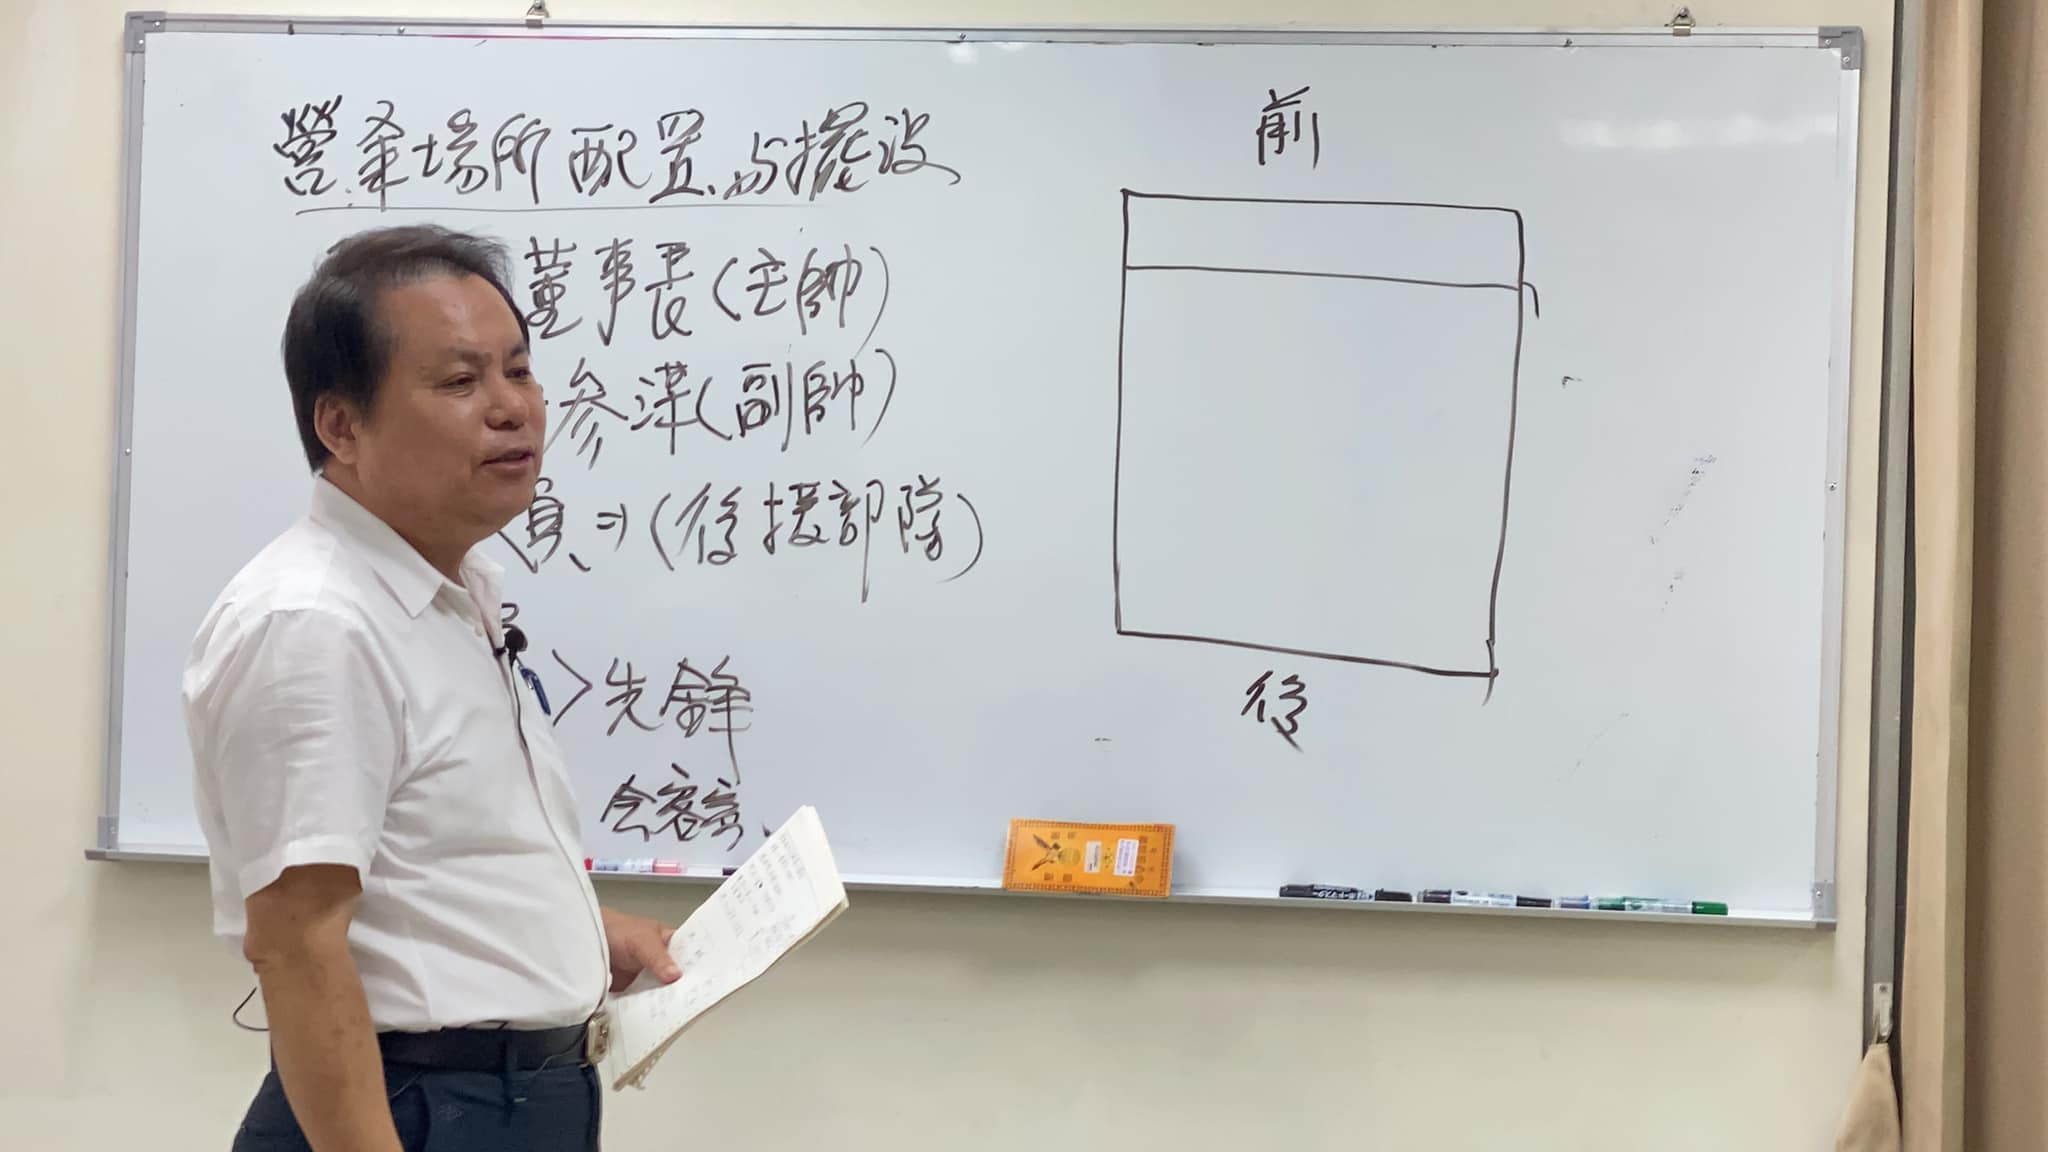 營業場所配置與擺設
董事長(主帥)
參謀(副帥)
員⇒(後援部隊)
>先鋒
會客室、
前
後